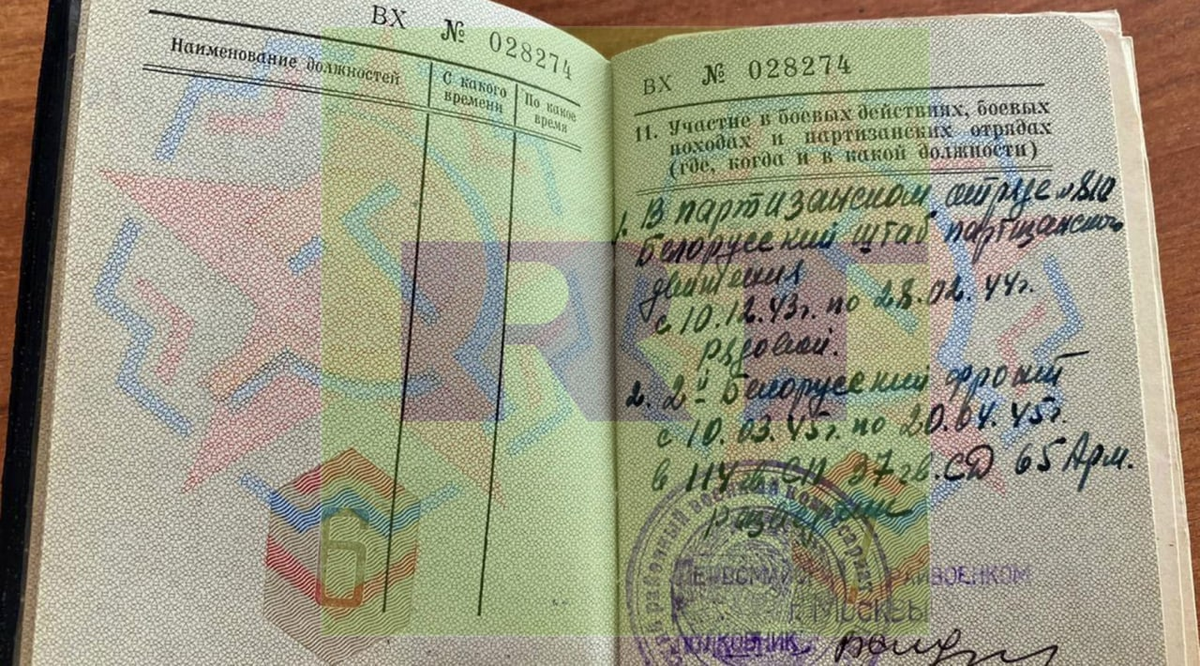 ВХ № 028274
Наименование должностей
С какого времени
По какое время
6
ВХ № 028274
11. Участие в боевых действиях, боевых
походах и партизанских отрядах
(где, когда и в какой должности)
1. В партизанском
Белорусский штаб партизанского
движения
с 10.12.43г. по 28.02.44г.
рядовой.
2. 2й Белорусский фронт
с 10.03.45г. по 20.04.45г.
в 114 гв СП 37 гв. СД 65 Арм.
военный комиссариат
РАЙВОЕНКОМ
г. МОСКВЫ
ПОЛКОВНИК
RT